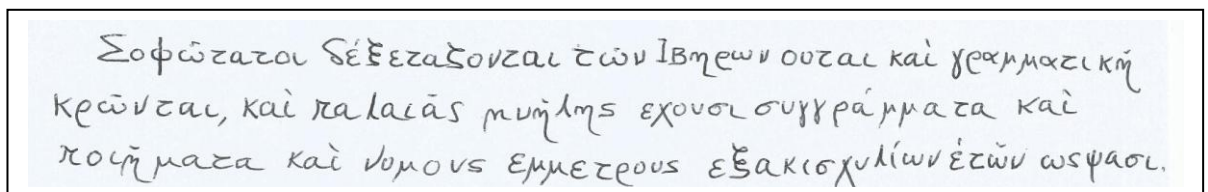 Σοφώτατοι δέξεταζονται τῶν Ιβηρων ουται καὶ γραμματικῇ
κρῶνται, καὶ παλαιᾶς μνήμης εχουσι συγγράμματα καὶ
ποιήματα καὶ νομους εμμετρους εξακισχυλίων έτῶν ωςφασι.